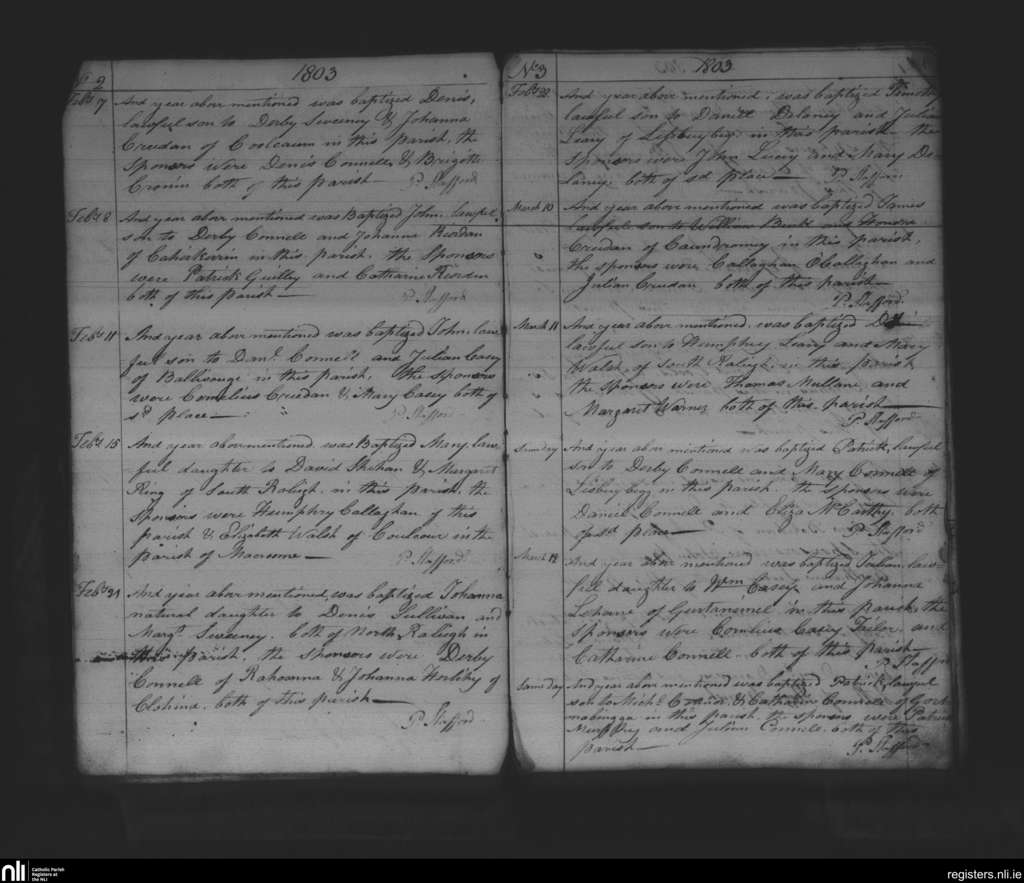 2 1803
Feby 7 And year above mentioned was baptized Denis,
lawful son to Derby Sweeney & Johanna
Creedan of Coolcaum in this parish, the
Sponsors were Denis Connell & Brigott
Cronin both of this parish P. Stafford
Feby 8 And year above mentioned was Baptized John, lawful
son to Derby Connell and Johanna Reordan
of Cahakerin in this parish, the Sponsors
were Patrick and Catharine Reorden
both of this parish P. Stafford
Feby 11 And year above mentioned was baptized John, law
ful son to Danl. Connell and Julian Casey
of in this parish, the sponsors
were Cornelius Creedan & Mary Casey both of
sd place P. Stafford
Feby 15 And year above mentioned was Baptized Mary, law
ful daughter to David Shehan & Margaret
Ring of South Raligh in this parish, the
Sponsors were Humphry Callaghan of this
parish & Elizabeth Walsh of Coulcour in the
parish of Macrome P. Stafford
Feby 21 And year above mentioned, was baptized Johanna
natural daughter to Denis Sullivan and
Margt. Sweeney, both of North Raleigh in
this parish, the Sponsors were Derby
Connell of Rahoanna & Johanna of
both of this parish
P. Stafford
No 3 1803
Feby 22 And year above mentioned, was baptized Timothy
lawful son to Daniell Delaney and Julian
Leary of in this parish the
sponsors were John Lucey and Mary De
laney both of sd place P. Stafford
March 10 And year above mentioned was baptized James
lawful son to William Burk and Honora
Creedan of in this parish,
the sponsors were Callaghan OCallaghan and
Julian Creedan, both of this parish
P. Stafford
March 11 And year above mentioned, was baptized
lawful son to Humphrey Leary and Mary
Walsh, of South Raligh, in this parish
the sponsors were Thomas Mullane, and
Margaret Warner both of this parish
P. Stafford
Sameday And year above mentioned was baptized Patrick, lawful
son to Derby Connell and Mary Connell of
Lisbuybeg in this parish, the sponsors were
Daniel Connell and Eliza McCarthy, both
of sd place P. Stafford
March 12 And year above mentioned was baptized Julian, law-
ful daughter to Wm Casey, and Johanna
Lehane of in this parish, the
Sponsors were Cornelius Casey Tailor, and
Catharine Connell both of this parish
P. Stafford
Sameday And year above mentioned was baptized Patrick, lawful
son to Michl & Catharine of Gort
in this parish, the sponsors were Patrick
Murphy and Julian Connell both of this
parish P. Stafford
nli Catholic Parish
Registers at
the NLI
registers.nli.ie